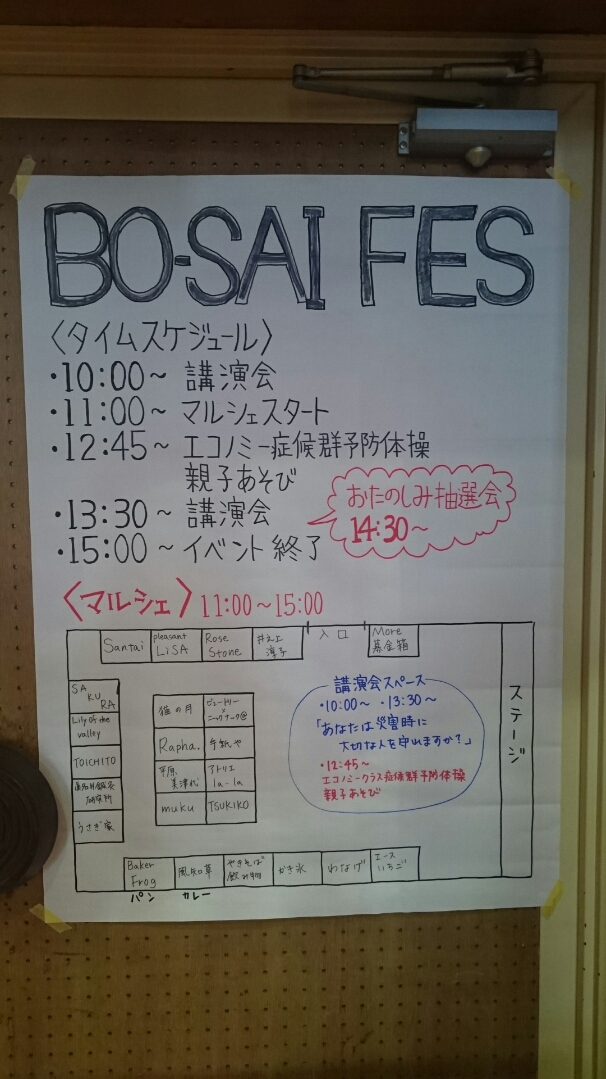 BO-SAI FES
〈タイムスケジュール〉
・10:00～ 講演会
・11:00～ マルシェスタート
・12:45～ エコノミー症候群予防体操
親子あそび
・13:30～ 講演会
・15:00～イベント終了
おたのしみ抽選会
14:30～
〈マルシェ〉11:00～15:00
Santai
pleasant
LiSA
Rose
Stone
井之上
淳子
入口
More
募金箱
SA
KU
RA
Lily of the
valley
TOICHITO
研究所
うさぎ家
猫の月
Rapha.
手紙や
平原
美津代
アトリエ
la-la
muku
TSUKIKO
講演会スペース
・10:00～ ・13:30～
「あなたは災害時に
大切な人を守れますか？」
・12:45～
エコノミークラス症候群予防体操
親子あそび
ステージ
Baker
Frog
パン
風知草
カレー
やきそば
飲み物
かき氷
わなげ
エース
いちご